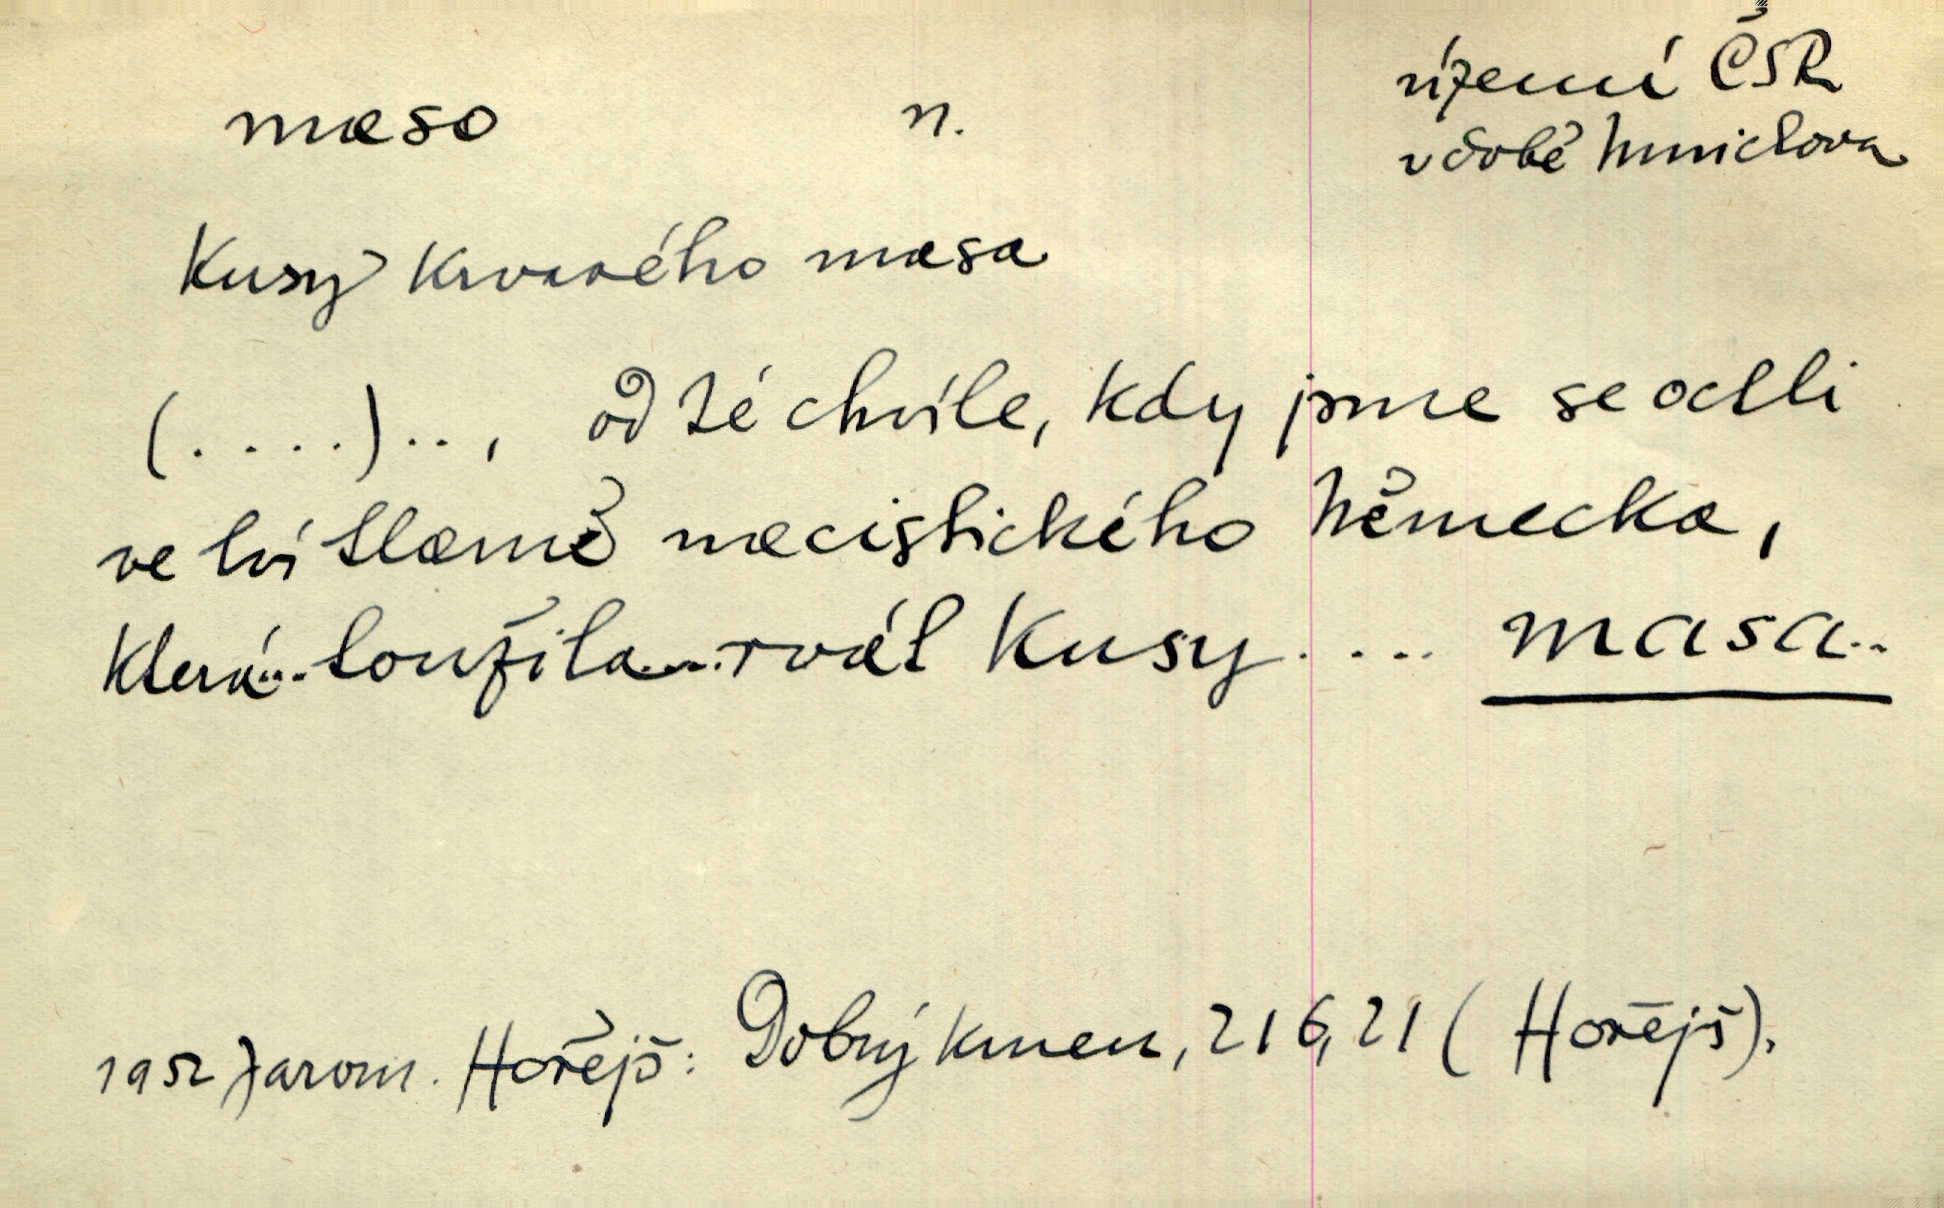 maso n. území ČSR
v době Mnichova
Kusy krvavého masa
(. . . .) . . , od té chvíle, kdy jsme se octli
ve lví tlamě nacistického Německa,
která... toužila... rvát kusy . . . . masa..
1952 Jarom. Hořejš: Dobrý kmen, 216, 21 (Hořejš).